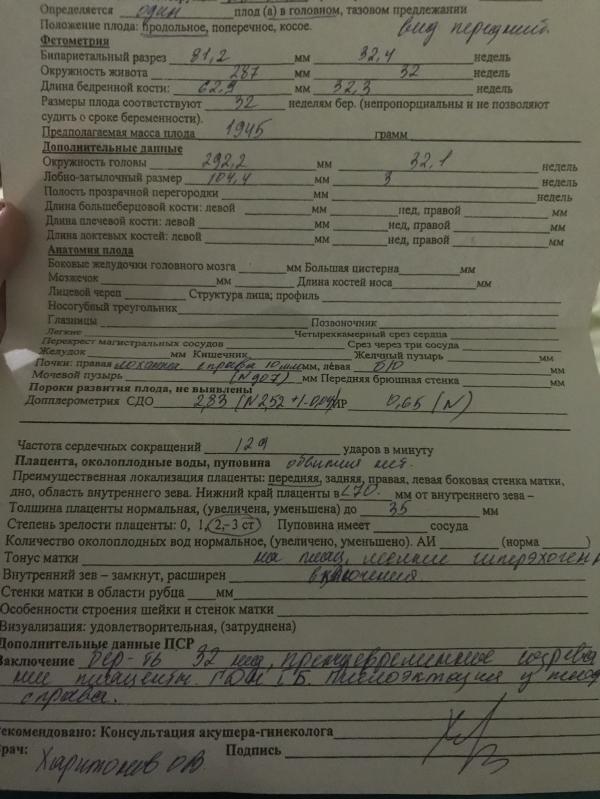 Определяется один плод (а) в головном, тазовом предлежании
Положение плода: продольное, поперечное, косое. вид передний.
Фетометрия
Бипариетальный разрез 81,2 мм 32,4 недель
Окружность живота 287 мм 32 недель
Длина бедренной кости: 62,9 мм 32,3 недель
Размеры плода соответствуют 32 неделям бер. (непропорциальны и не позволяют
судить о сроке беременности).
Предполагаемая масса плода 1945 грамм
Дополнительные данные
Окружность головы 292,2 мм 32,1 недель
Лобно-затылочный размер 104,4 мм 3 недель
Полость прозрачной перегородки мм недель
Длина большеберцовой кости: левой мм нед, правой мм
Длина плечевой кости: левой мм нед, правой мм
Длина локтевых костей: левой мм нед, правой мм
Анатомия плода
Боковые желудочки головного мозга мм Большая цистерна мм
Мозжечок мм Длина костей носа мм
Лицевой череп Структура лица; профиль
Носогубный треугольник
Глазницы Позвоночник
Легкие Четырехкамерный срез сердца
Перекрест магистральных сосудов Срез через три сосуда
Желудок мм Кишечник Желчный пузырь мм
Почки: правая лоханка справа 10 мм мм, левая б/о
Мочевой пузырь мм Передняя брюшная стенка мм
Пороки развития плода, не выявлены
Допплерометрия СДО 2,83 (N 2,52 +/- ИР 0,65 (N)
Частота сердечных сокращений 129 ударов в минуту
Плацента, околоплодные воды, пуповина обвития нет.
Преимущественная локализация плаценты: передняя, задняя, правая, левая боковая стенка матки,
дно, область внутреннего зева. Нижний край плаценты в 70 мм от внутреннего зева –
Толщина плаценты нормальная, (увеличена, уменьшена) до 35 мм
Степень зрелости плаценты: 0, 1, (2,-3 ст) Пуповина имеет сосуда
Количество околоплодных вод нормальное, (увеличено, уменьшено). АИ (норма )
Тонус матки на плац, мелкие гиперэхоген
Внутренний зев – замкнут, расширен включения
Стенки матки в области рубца мм
Особенности строения шейки и стенок матки
Визуализация: удовлетворительная, (затруднена)
Дополнительные данные ПСР
Заключение Бер-ть 32 нед, преждевременное созрева
ние плаценты. Пиелоэктазия у плода
справа.
Рекомендовано: Консультация акушера-гинеколога
Врач: Харитонов ОВ. Подпись